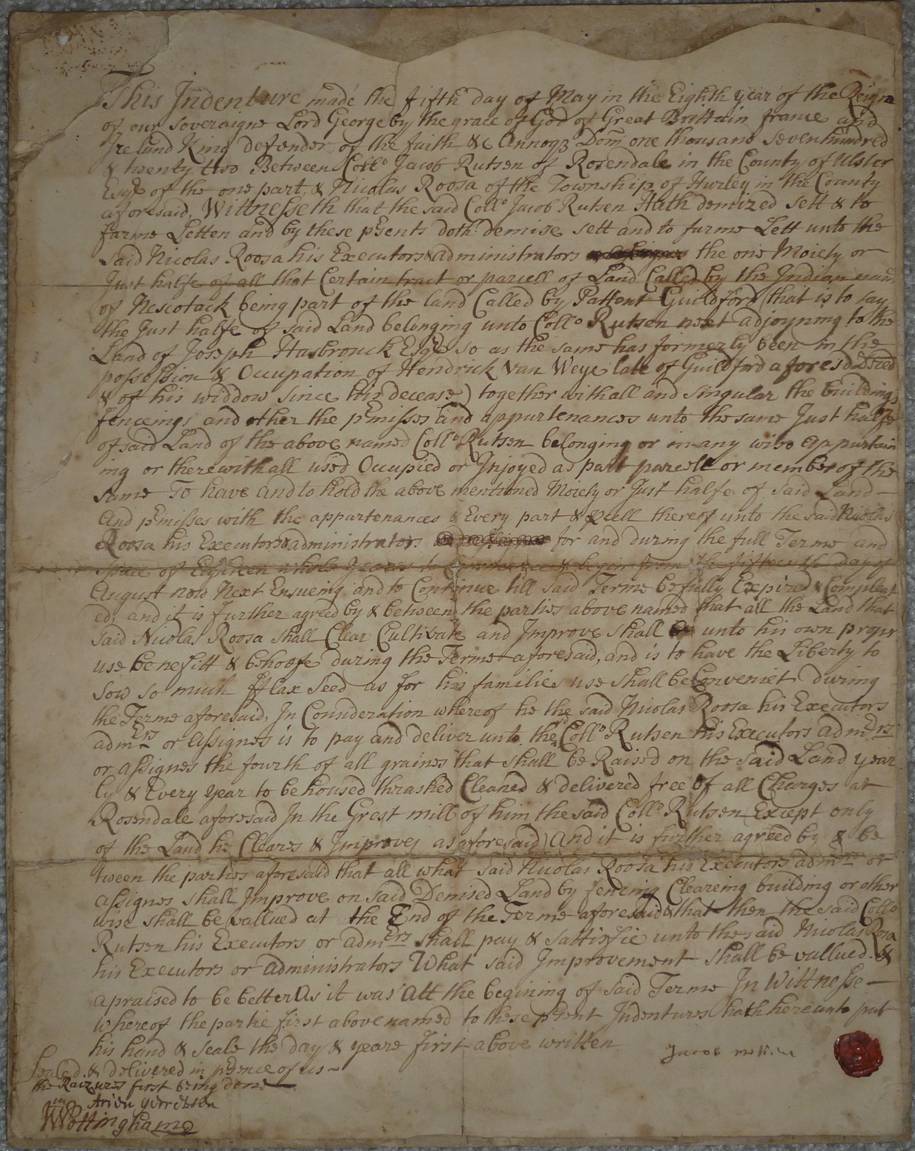 This Indenture made the fifth day of May in the Eighth year of the Reign
of our Soveraigne Lord George by the grace of God of Great Brittain france and
Ireland King defender of the faith &c Annoq Dom one thousand sevenhundred
& twenty two Between Coll.o Jacob Rutsen of Rosendale in the County of Ulster
Esqr of the one part, & Nicolas Roosa of the Township of Hurley in the County
aforesaid, Wittnesseth that the said Coll.o Jacob Rutsen Hath demized sett & to
farme Letten and by these psents doth demise sett and to farme Lett unto the
said Nicolas Roosa his Executors & administrators the one Moiety or
Just halfe of all that Certain tract or parcell of Land Called by the Indian name
of Nescotack being part of the land Called by Pattent Guildford, that is to say
the Just halfe of said Land belonging unto Coll.o Rutsen next adjoyning to the
Land of Joseph Hasbrouck Esqr so as the same has formerly been in the
possession & Occupation of Hendrick Van Weye late of Guildford aforesd
& of his widdow since his decease) together with all and singular the buildings
fencing, and other the pmisses and appurtenances unto the same Just halfe
of said Land of the above named Coll.o Rutsen belonging or in any wise appurtain
ing or therewithall used Occupied or Injoyed as part parcell or member of the
same To have and to hold the above mentioned Moiety or Just halfe of said Land
And pmisses with the appartenances & Every part & pcell thereof unto the said Nicolas
Roosa his Executors & administrators for and during the full Terme and
space of Eighteen whole years to Commence & begin from the fifteenth day of
August now Next Ensueing and to Continue till said Terme be fully Expired & Compleat
ed; and it is further agreed by & between the parties above named that all the Land that
said Nicolas Roosa shall Clear Cultivate and Improve shall be unto his own proper
use benefitt & behoofe during the Terme aforesaid, and is to have the Liberty to
sow so much fflax Seed as for his families use shall be Conveniet during
the Terme aforesaid, In Consideration whereof he the said Nicolas Roosa his Executors
admrs or Assignes is to pay and deliver unto the Coll.o Rutsen his Executors admrs
or Assignes the fourth of all graines that shall be Raised on the said Land year
ly & Every year to be housed thrashed Cleaned & delivered free of all Charges at
Rosendale aforesaid In the Grest mill of him the said Coll.o Rutsen Except only
of the Land he Cleares & Improves as aforesaid And it is further agreed by & be
tween the parties aforesaid that all what said Nicolas Roosa his Executors admrs or
assignes shall Improve on said Demised Land by fenceing Cleareing building or other
wise shall be vallued at the End of the Terme aforesaid & that then the said Coll.o
Rutsen his Executors or admrs shall pay & sattisfie unto the said Nicolas Roosa
his Executors or administrators What said Improvement shall be vallued &
apraised to be better As it was Att the begining of said Terme In Wittnesse
whereof the partie first above named to these psent Indentures hath hereunto put
his hand & seale the day & yeare first above written
Jacob
Sealed & delivered in psence of us
the Razures first being done
Arien Gerritsen
WNottingham